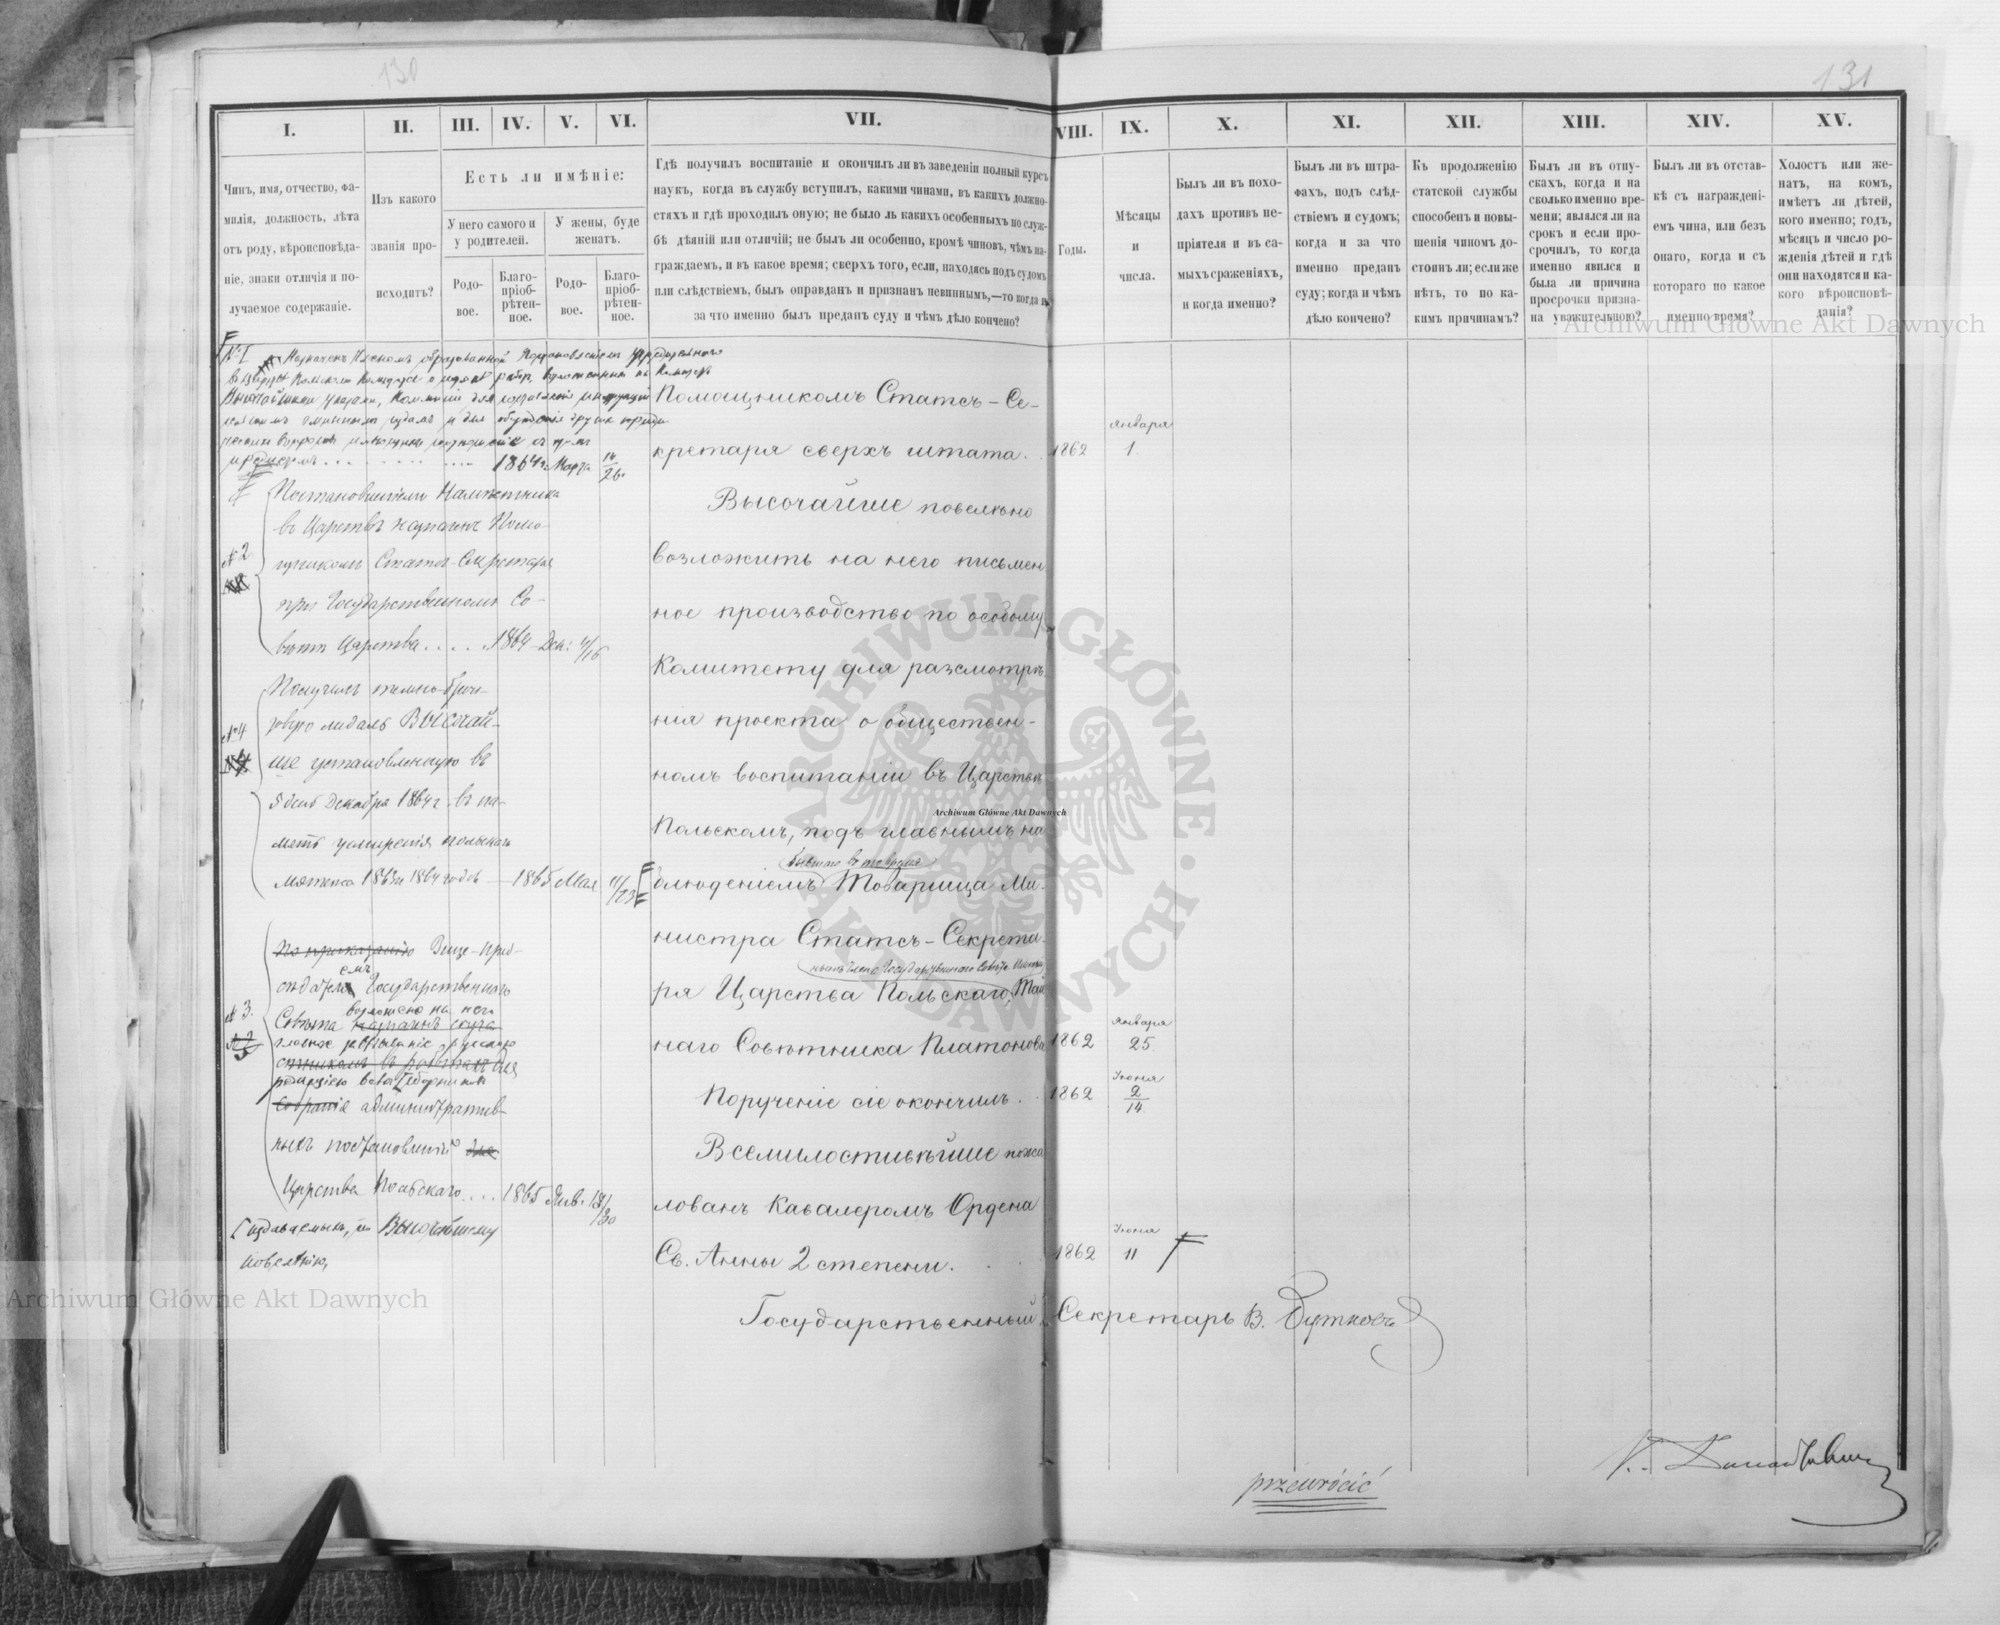 130
131
I.
II.
III.
IV.
V.
VI.
VII.
VIII.
IX.
X.
XI.
XII.
XIII.
XIV.
XV.
Чинъ, имя, отчество, фа-
милія, должность, лѣта
отъ роду, вѣроисповѣда-
ніе, знаки отличія и по-
лучаемое содержаніе.
Изъ какого
званія про-
исходитъ?
Есть ли имѣніе:
У него самого и
у родителей.
У жены, буде
женатъ.
Родо-
вое.
Благо-
пріоб-
рѣтен-
ное.
Родо-
вое.
Благо-
пріоб-
рѣтен-
ное.
Гдѣ получилъ воспитаніе и окончилъ ли въ заведеніи полный курсъ
наукъ, когда въ службу вступилъ, какими чинами, въ какихъ должно-
стяхъ и гдѣ проходилъ оную; не было ль какихъ особенныхъ по служ-
бѣ дѣяній или отличій; не былъ ли особенно, кромѣ чиновъ, чѣмъ на-
граждаемъ, и въ какое время; сверхъ того, если, находясь подъ судомъ
или слѣдствіемъ, былъ оправданъ и признанъ невиннымъ,—то когда и
за что именно былъ преданъ суду и чѣмъ дѣло кончено?
Годы.
Мѣсяцы
и
числа.
Былъ ли въ похо-
дахъ противъ не-
пріятеля и въ са-
мыхъ сраженіяхъ,
и когда именно?
Былъ ли въ штра-
фахъ, подъ слѣд-
ствіемъ и судомъ;
когда и за что
именно преданъ
суду; когда и чѣмъ
дѣло кончено?
Къ продолженію
статской службы
способенъ и повы-
шенія чиномъ до-
стоинъ ли; если же
нѣтъ, то по ка-
кимъ причинамъ?
Былъ ли въ отпу-
скахъ, когда и на
сколько именно вре-
мени; являлся ли на
срокъ и если про-
срочилъ, то когда
именно явился и
была ли причина
просрочки призна-
на уважительною?
Былъ ли въ отстав-
кѣ съ награжденi-
емъ чина, или безъ
онаго, когда и съ
котораго по какое
именно время?
Холостъ или же-
натъ, на комъ,
имѣетъ ли дѣтей,
кого именно; годъ,
мѣсяцъ и число ро-
жденія дѣтей и гдѣ
они находятся и ка-
кого вѣроисповѣ-
данія?
№ 1 Назначенъ Членомъ образованной
1864 г. Марта 14/26.
Постановленіемъ Намѣстника
въ Царствѣ назначенъ Помо-
№ 2
щникомъ Статсъ-Секретаря
при Государственномъ Со-
вѣтѣ Царства..... 1864 Дек. 4/16
Получилъ темно-брон-
зовую медаль Высочай-
№ 4
ше установленную въ
Декабря 1864 г. въ па-
мять усмиренія польскаго
мятежа 1863 и 1864 годовъ — 1865 Мая 11/23
По приказанію Вице-Пред-
сѣдателемъ Государственнаго
возложено на него
№ 3.
Совѣта
Собранія административ-
ныхъ постановленій для
Царства Польскаго.... 1865 Янв. 18/30
издаваемыхъ, по Высочайшему
повелѣнію,
Помощникомъ Статсъ-Се-
кретаря сверхъ штата. 1862 Января 1.
Высочайше повелѣно
возложить на него письмен
ное производство по особому
Комитету для разсмотрѣ
нія проекта о обществен-
номъ воспитаніи въ Царствѣ
Польскомъ, подъ главнымъ на
бывшаго въ то время
блюденіемъ Товарища Ми-
нистра Статсъ-Секрета-
нынѣ Члена Государственнаго Совѣта
ря Царства Польскаго, Тай
наго Совѣтника Платонова 1862 Января 25
Порученіе сіе окончилъ. 1862 Іюня 2/14
Всемилостивѣйше пожа
лованъ Кавалеромъ Ордена
Св. Анны 2 степени. 1862 Іюня 11
Государственный Секретарь В. Бутковъ
przewrócić
Archiwum Główne Akt Dawnych
Archiwum Główne Akt Dawnych
Archiwum Główne Akt Dawnych
ARCHIWUM GŁÓWNE AKT DAWNYCH